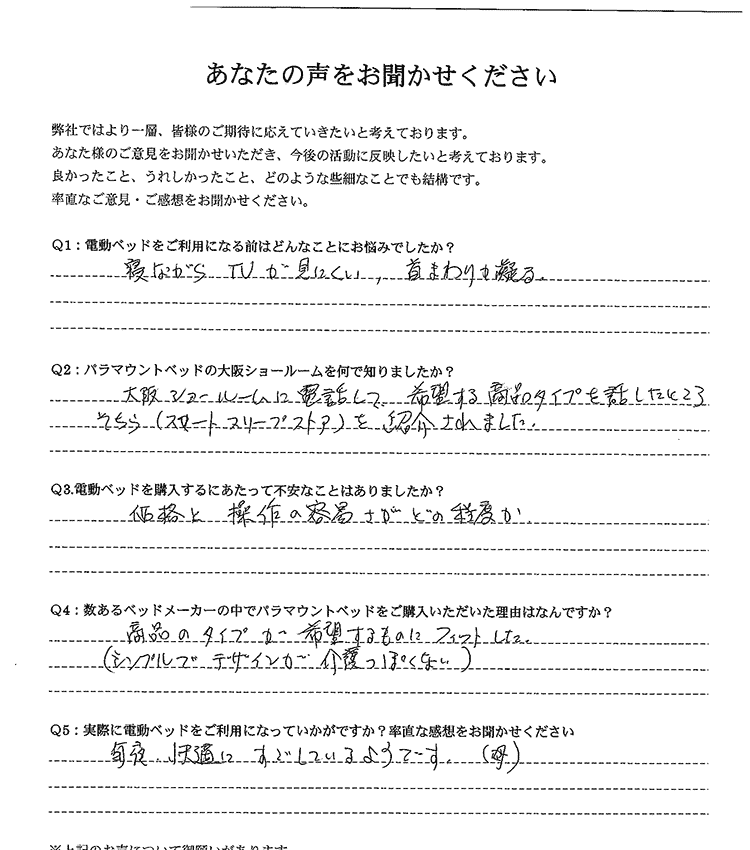 あなたの声をお聞かせください
弊社ではより一層、皆様のご期待に応えていきたいと考えております。
あなた様のご意見をお聞かせいただき、今後の活動に反映したいと考えております。
良かったこと、うれしかったこと、どのような些細なことでも結構です。
率直なご意見・ご感想をお聞かせください。
Q1：電動ベッドをご利用になる前はどんなことにお悩みでしたか？
寝ながらTVが見にくい，首まわりが凝る．
Q2：パラマウントベッドの大阪ショールームを何で知りましたか？
大阪ショールームに電話して、希望する商品タイプを話したところ
そちら（スマートスリープストア）を紹介されました．
Q3.電動ベッドを購入するにあたって不安なことはありましたか？
価格と操作の容易さがどの程度か．
Q4：数あるベッドメーカーの中でパラマウントベッドをご購入いただいた理由はなんですか？
商品のタイプが希望するものにフィットした．
（シンプルでデザインが介護っぽくない）
Q5：実際に電動ベッドをご利用になっていかがですか？率直な感想をお聞かせください
毎夜、快適にすごしているようです．（母）
※上記のお声について御願いがあります